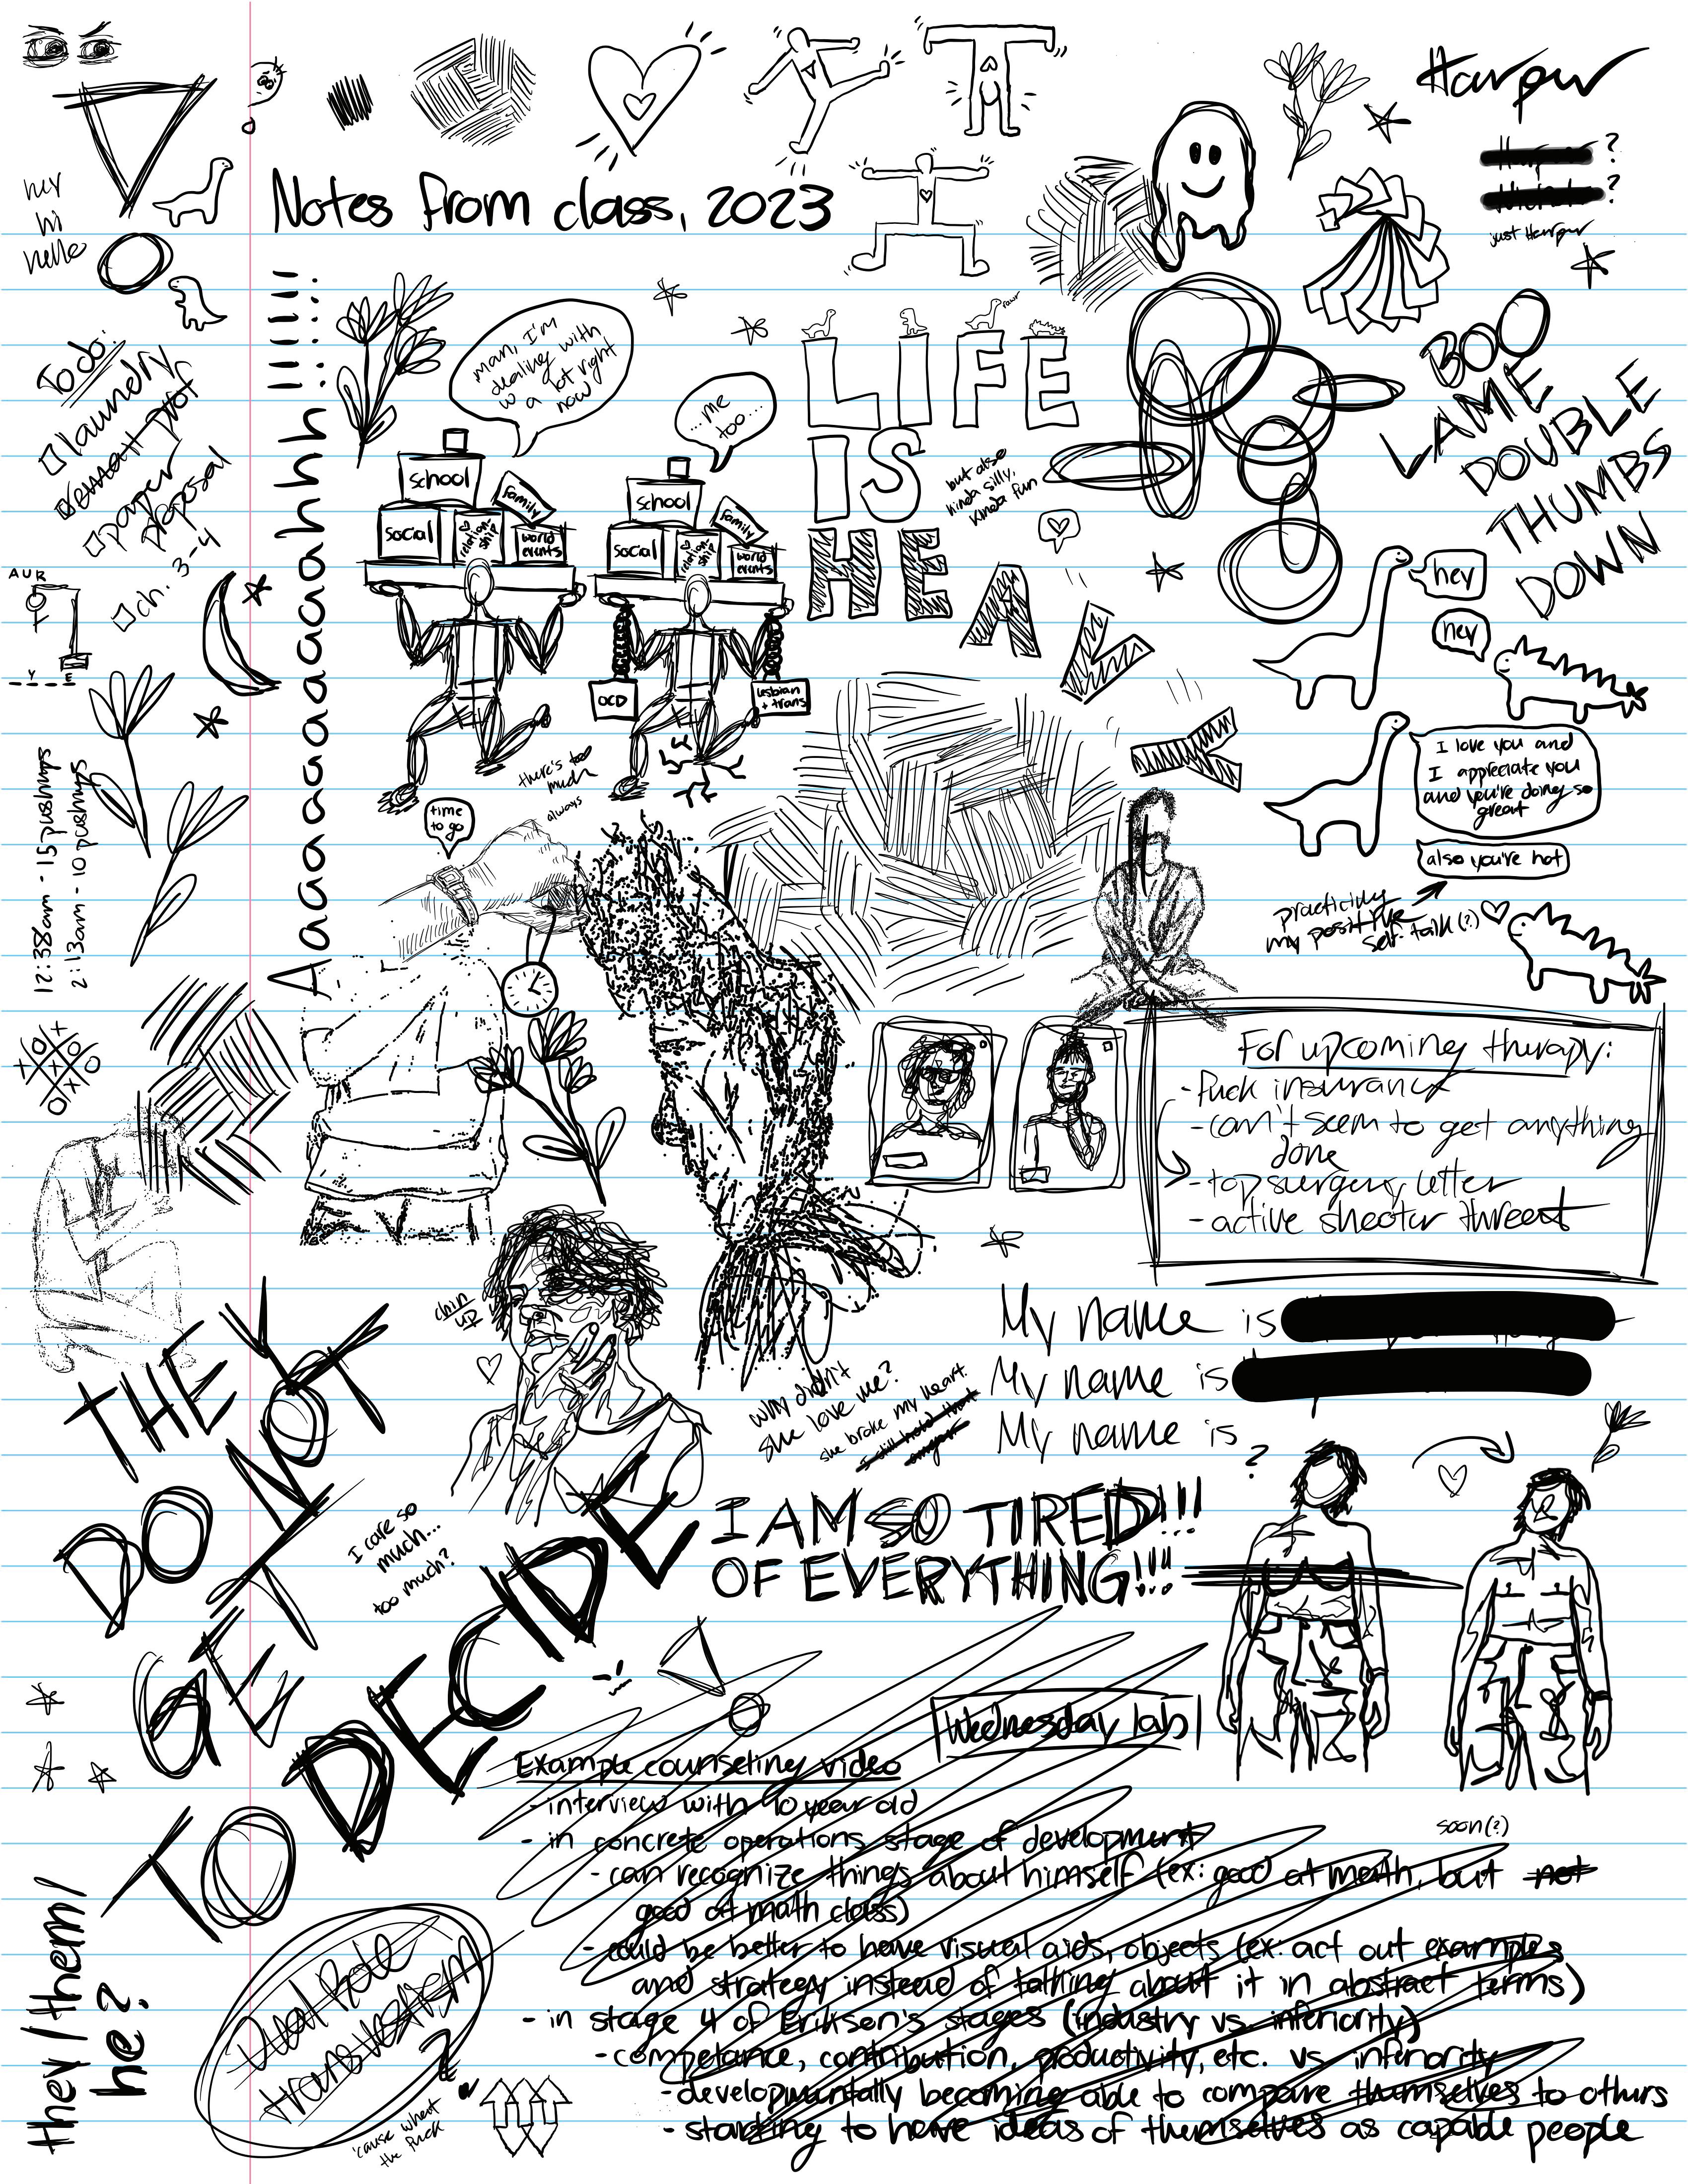 Harper
?
?
just Harper
hey
hi
hello
Notes from class, 2023
To do:
laundry
email prof
paper
proposal
ch. 3-4
AUR
F
_ _ _ Y _ E _
Aaaaaaaaaaaahhh !!!!!!
man, I'm
dealing with
a lot right
now
...me
too...
school
family
social
relationship
world
events
school
family
social
relationship
world
events
OCD
lesbian
+ trans
there's too
much
always
LIFE
rawr
IS
HEAVY
but also
kinda silly,
kinda fun
BOO
LAME
DOUBLE
THUMBS
DOWN
hey
hey
I love you and
I appreciate you
and you're doing so
great
also you're hot
practicing
my positive
self-talk(?)
12:38am - 15 pushups
2:13am - 10 pushups
time
to go
For upcoming therapy:
- fuck insurance
- can't seem to get anything
done
- top surgery letter
- active shooter threat
chin
up
My name is
My name is
My name is
?
why didn't
she love me?
she broke my heart.
I still hold that
anger
THEY
DO NOT
GET
TO DECIDE
I care so
much...
too much?
I AM SO TIRED!!!
OF EVERYTHING!!!
soon(?)
Wednesday lab
Example counseling video
- interview with 10 year old
- in concrete operations stage of development
- can recognize things about himself (ex: good at math, but not
good at math class)
- could be better to have visual aids, objects (ex: act out examples
and strategy instead of talking about it in abstract terms)
- in stage 4 of Erikson's stages (industry vs. inferiority)
- competance, contribution, productivity, etc. vs inferiority
- developmentally becoming able to compare themselves to others
- starting to have ideas of themselves as capable people
they/them/
he?
Dual Role
transvestism
?
'cause what
the fuck